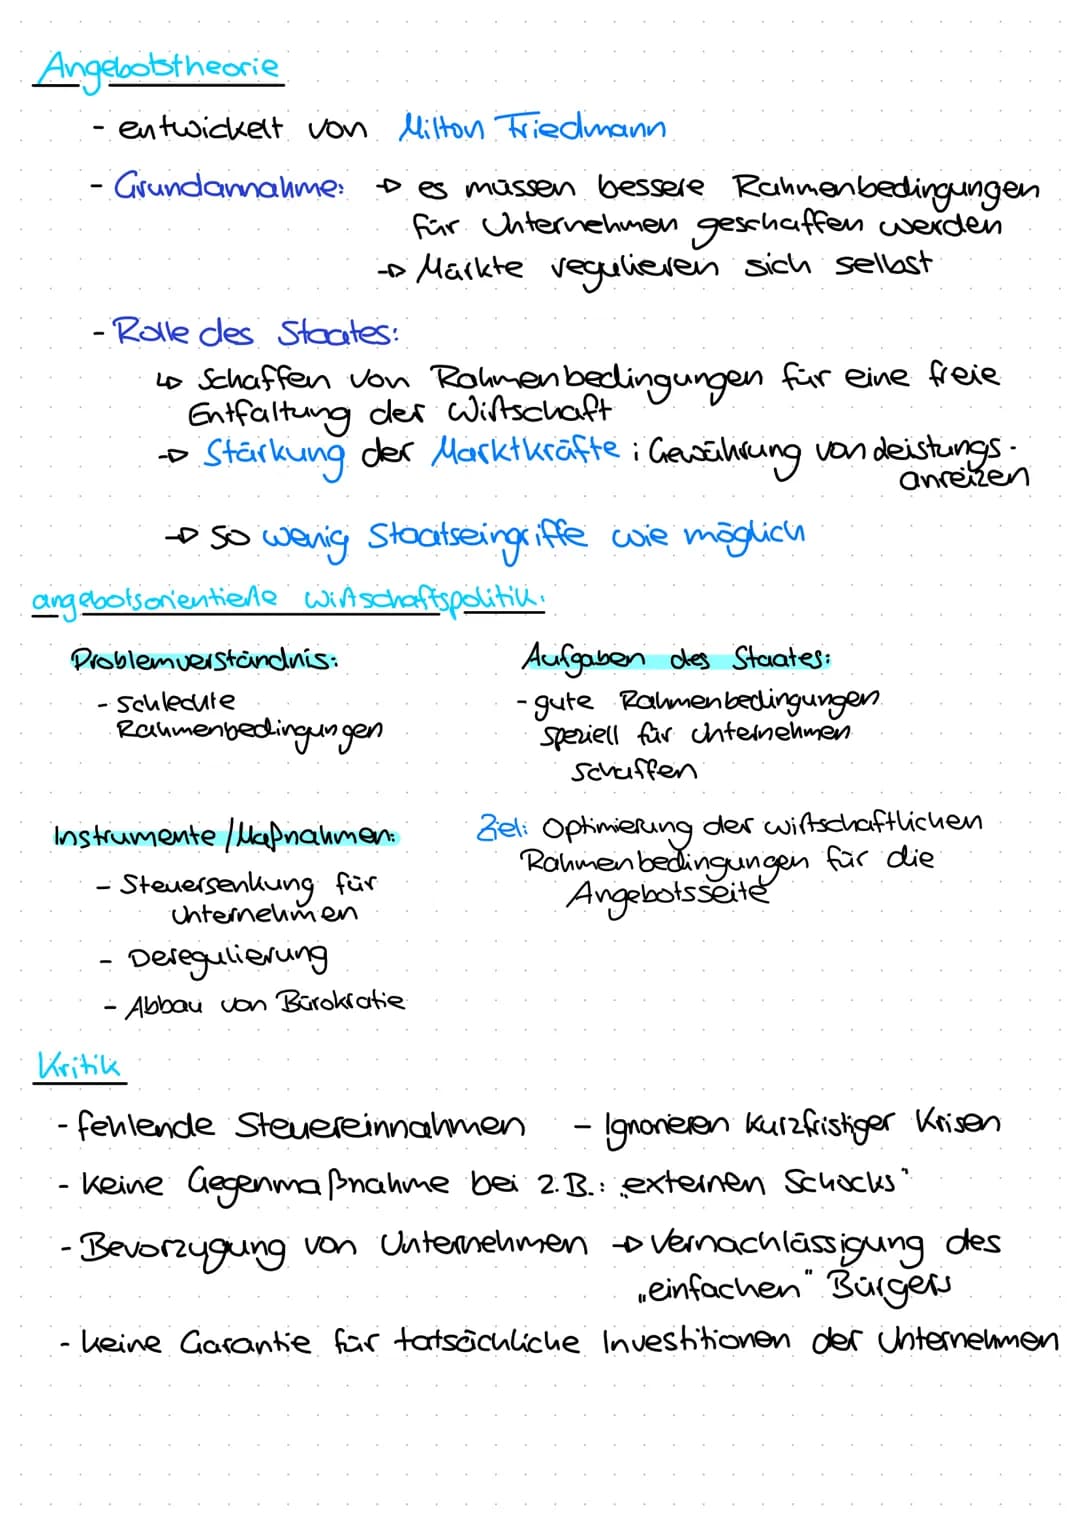 Angebotstheorie
- entwickelt von Milton Friedmann
- Grundannahme: → es müssen bessere Rahmenbedingungen
für Unternehmen geschaffen werden
→ Märkte regulieren sich selbst
- Rolle des Staates:
↳ Schaffen von Rahmenbedingungen für eine freie
Entfaltung der Wirtschaft
→ Stärkung der Marktkräfte ; Gewährung von Leistungs-
anreizen
→ so wenig Staatseingriffe wie möglich
angebotsorientierte Wirtschaftspolitik:
Problemverständnis:
- schlechte
Rahmenbedingungen
Aufgaben des Staates:
- gute Rahmenbedingungen
speziell für Unternehmen
schaffen
Instrumente/Maßnahmen:
- Steuersenkung für
Unternehmen
- Deregulierung
- Abbau von Bürokratie
Ziel: Optimierung der wirtschaftlichen
Rahmenbedingungen für die
Angebotsseite
Kritik
- fehlende Steuereinnahmen - Ignorieren kurzfristiger Krisen
- keine Gegenmaßnahme bei z.B.: „externen Schocks"
- Bevorzugung von Unternehmen → Vernachlässigung des
„einfachen" Bürgers
- keine Garantie für tatsächliche Investitionen der Unternehmen